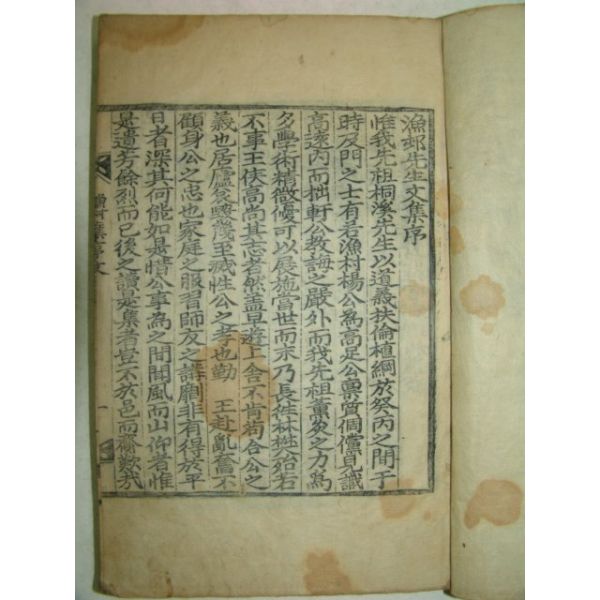 漁邨先生文集序
惟我先祖桐溪先生以道義扶倫植綱於癸丙之間于
時及門之士有若漁村楊公為高足公稟質倜儻見識
高遠內而拙軒公教誨之嚴外而我先祖薰炙之力為
多學術精微優可以展施當世而求乃長往林樊殆若
不事王侯高尚其志者然盖早遊上舍不肯苟合公之
義也居廬哀毀幾至滅性公之孝也勤 王赴亂奮不
顧身公之忠也家庭之服習師友之講劘非有得於平
日者深其何能如是惜公事為之間聞風而山仰者惟
是遺芳餘烈而已後之讀是集者豈不於邑而齎歎哉
漁村集序文
一